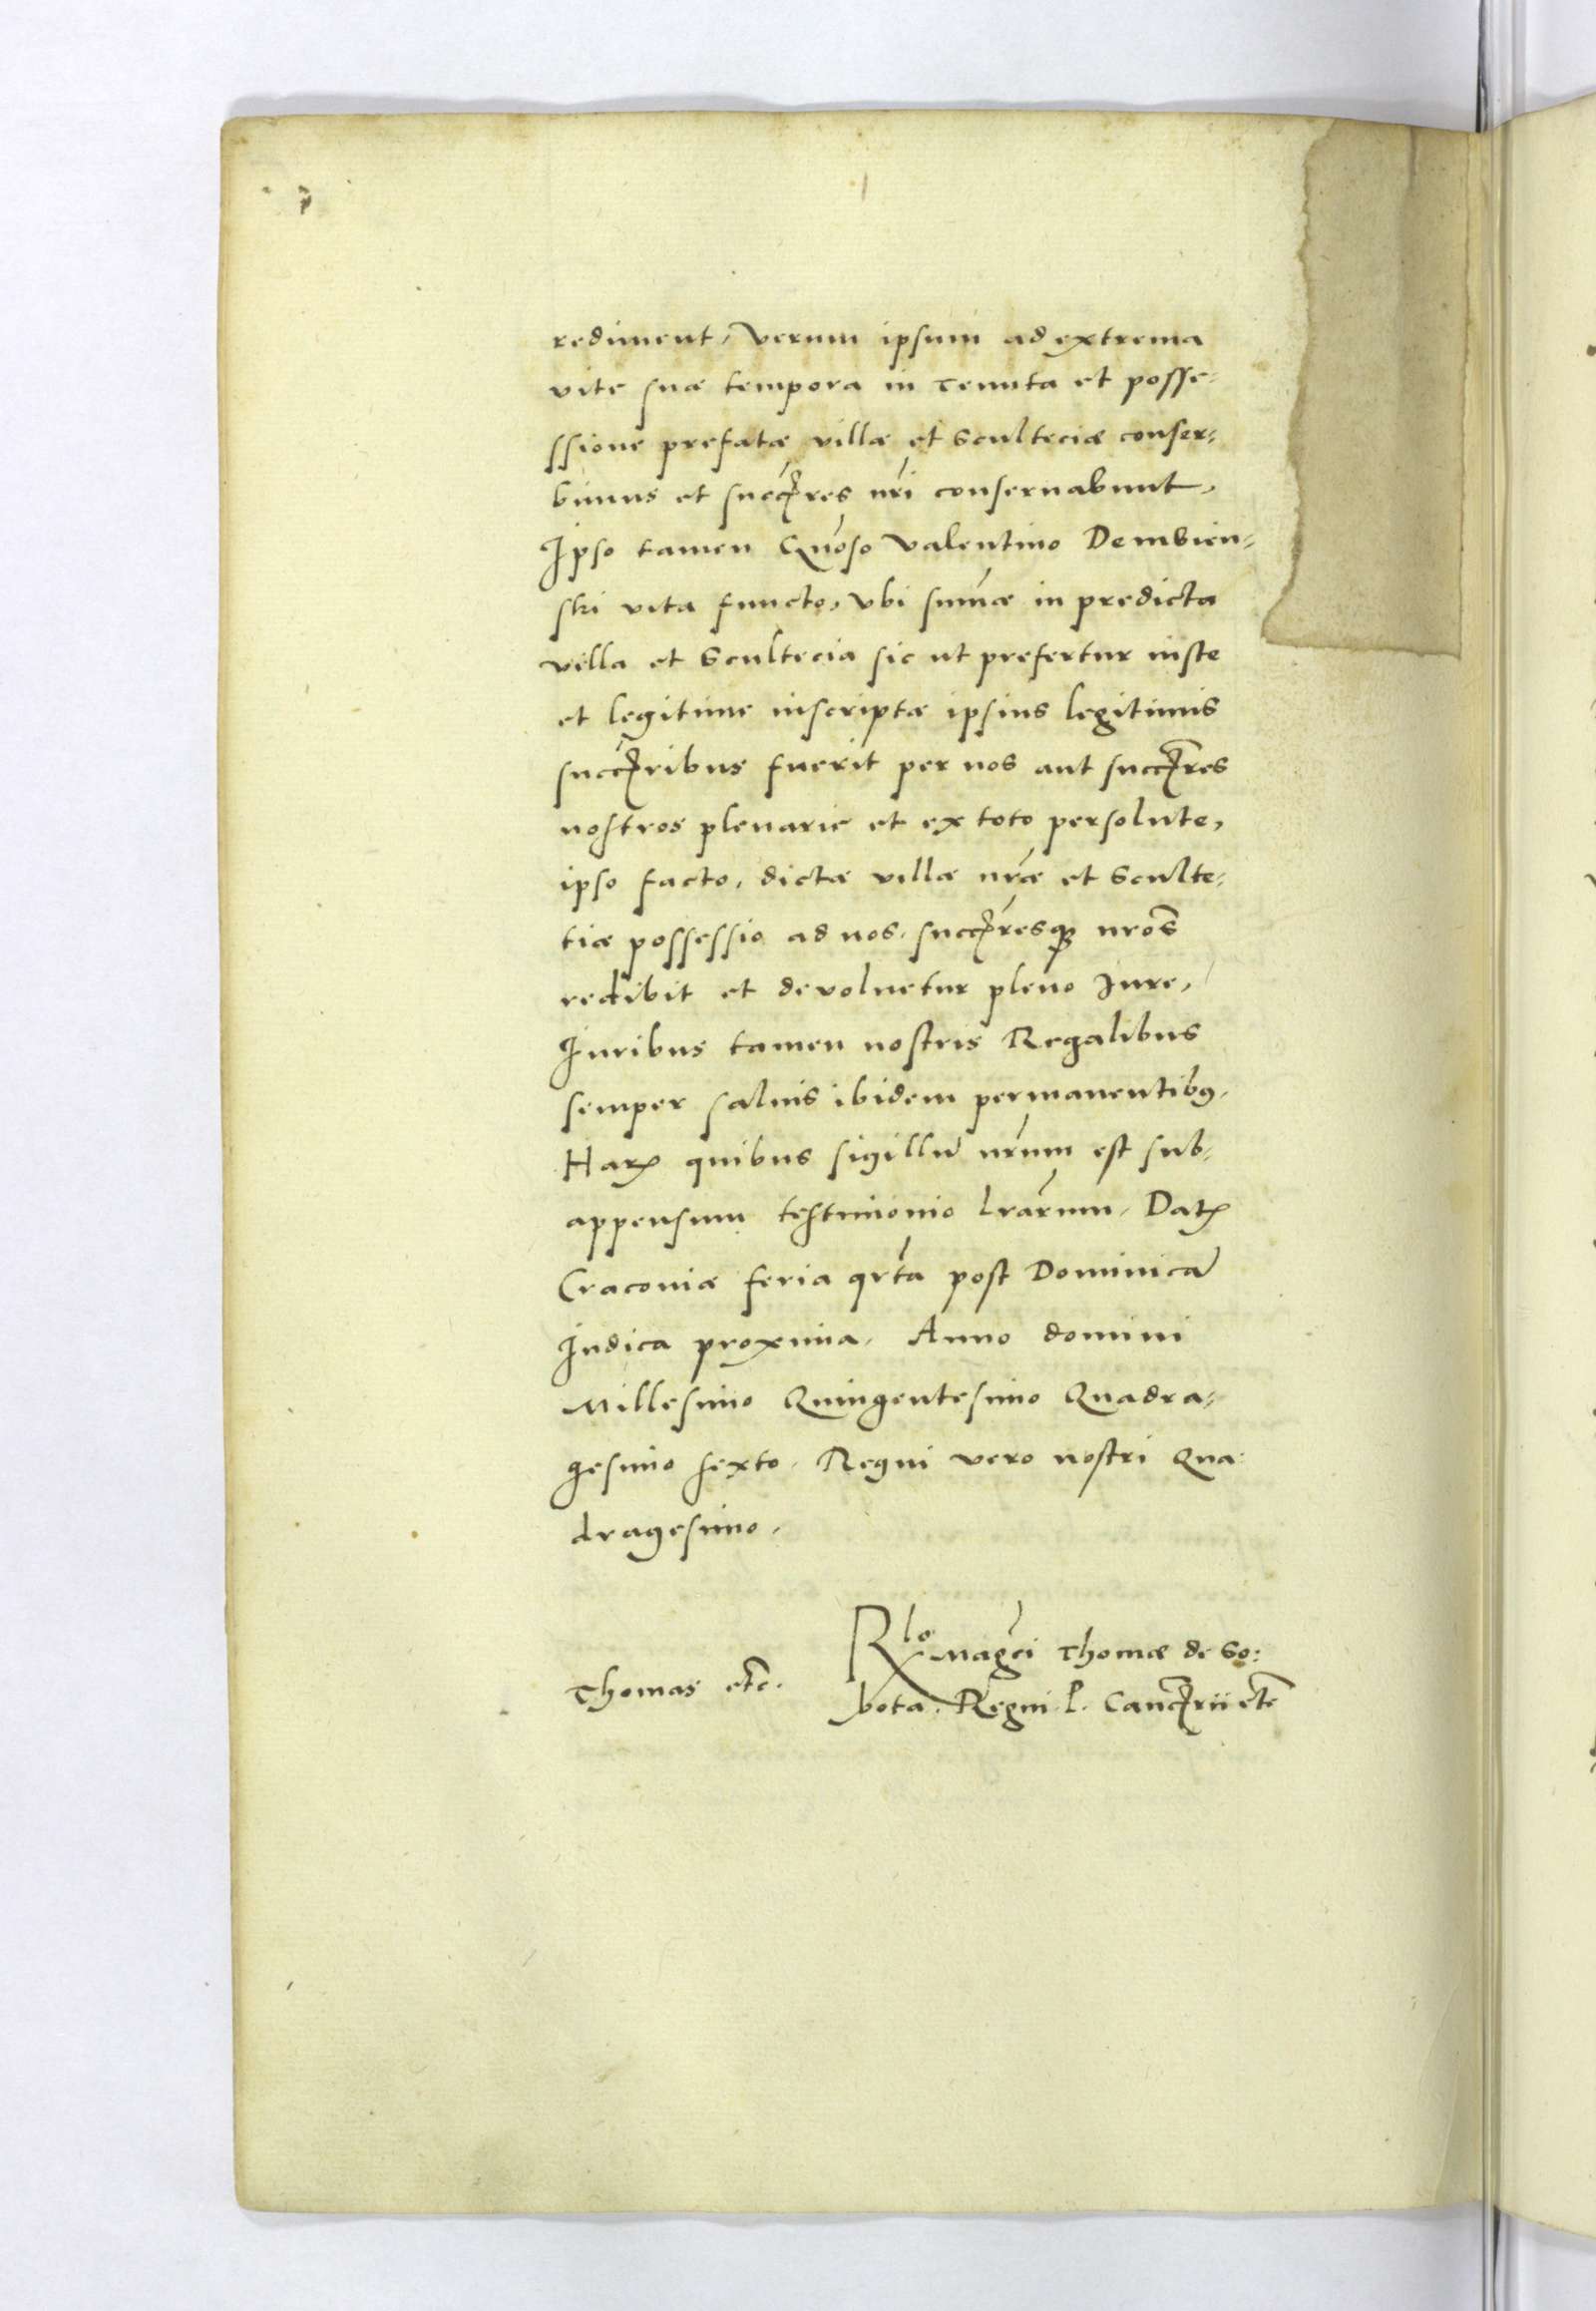 rediment, Verum ipsum ad extrema
vite suæ tempora in Tenuta et posse-
ssione prefatæ villæ et Scultetiæ conser-
bimus et succres nri conseruabunt,
Ipso tamen Gnoso Valentino Dembien-
ski vita functo, Vbi sumæ in predicta
villa et Scultecia sic ut prefertur iuste
et legitime inscriptæ ipsius legitimis
succribus fuerit per nos aut succres
nostros plenarie et ex toto persolute,
ipso facto, dictæ villæ nræ et Sculte-
tiæ possessio ad nos, succresq3 nros
redibit et devoluetur pleno Jure,
Iuribus tamen nostris Regalibus
semper saluis ibidem permanentibꝰ.
Harꝝ quibus sigillũ nrum est sub-
appensum testimonio lrarum, Datꝝ
Cracoviæ feria qrta post Dominicã
Iudica proxima, Anno domini
Millesimo Quingentesimo Quadra-
gesimo sexto, Regni vero nostri Qua-
dragesimo,
Thomas etc.
Rlo Magci Thomæ de So-
bota, Regni P. Cancrii etc